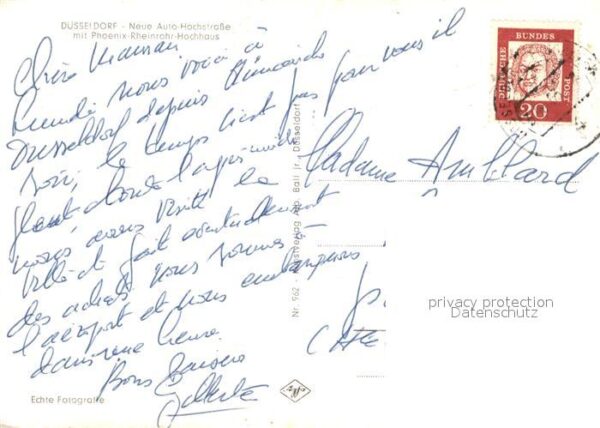 DÜSSELDORF - Neue Auto-Hochstraße
mit Phoenix-Rheinrohr-Hochhaus
Chère Maman
nous voici à
Dusseldorf depuis Dimanche
soir, le temps n'est pas pour nous il
pleut toute l'après midi
nous avons visité la
ville et fait
des achats nous sommes à
l'aéroport et nous embarquons
dans une heure
Bons Baisers
Echte Fotografie
Nr. 962 - Kunstverlag Alb. Ball jr. Düsseldorf
DEUTSCHE
BUNDES
POST
20
Madame Amblard
privacy protection
Datenschutz